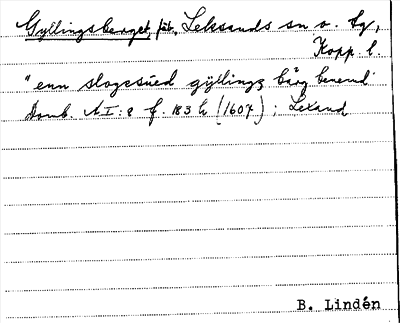 Gyllingsberget, fäb., Leksands sn o. tg,
Kopp. l.
"enn slogesued gyllingz bärg benemd"
Domb. A I:8 f. 183 h (1607); Lexand
B. Lindén